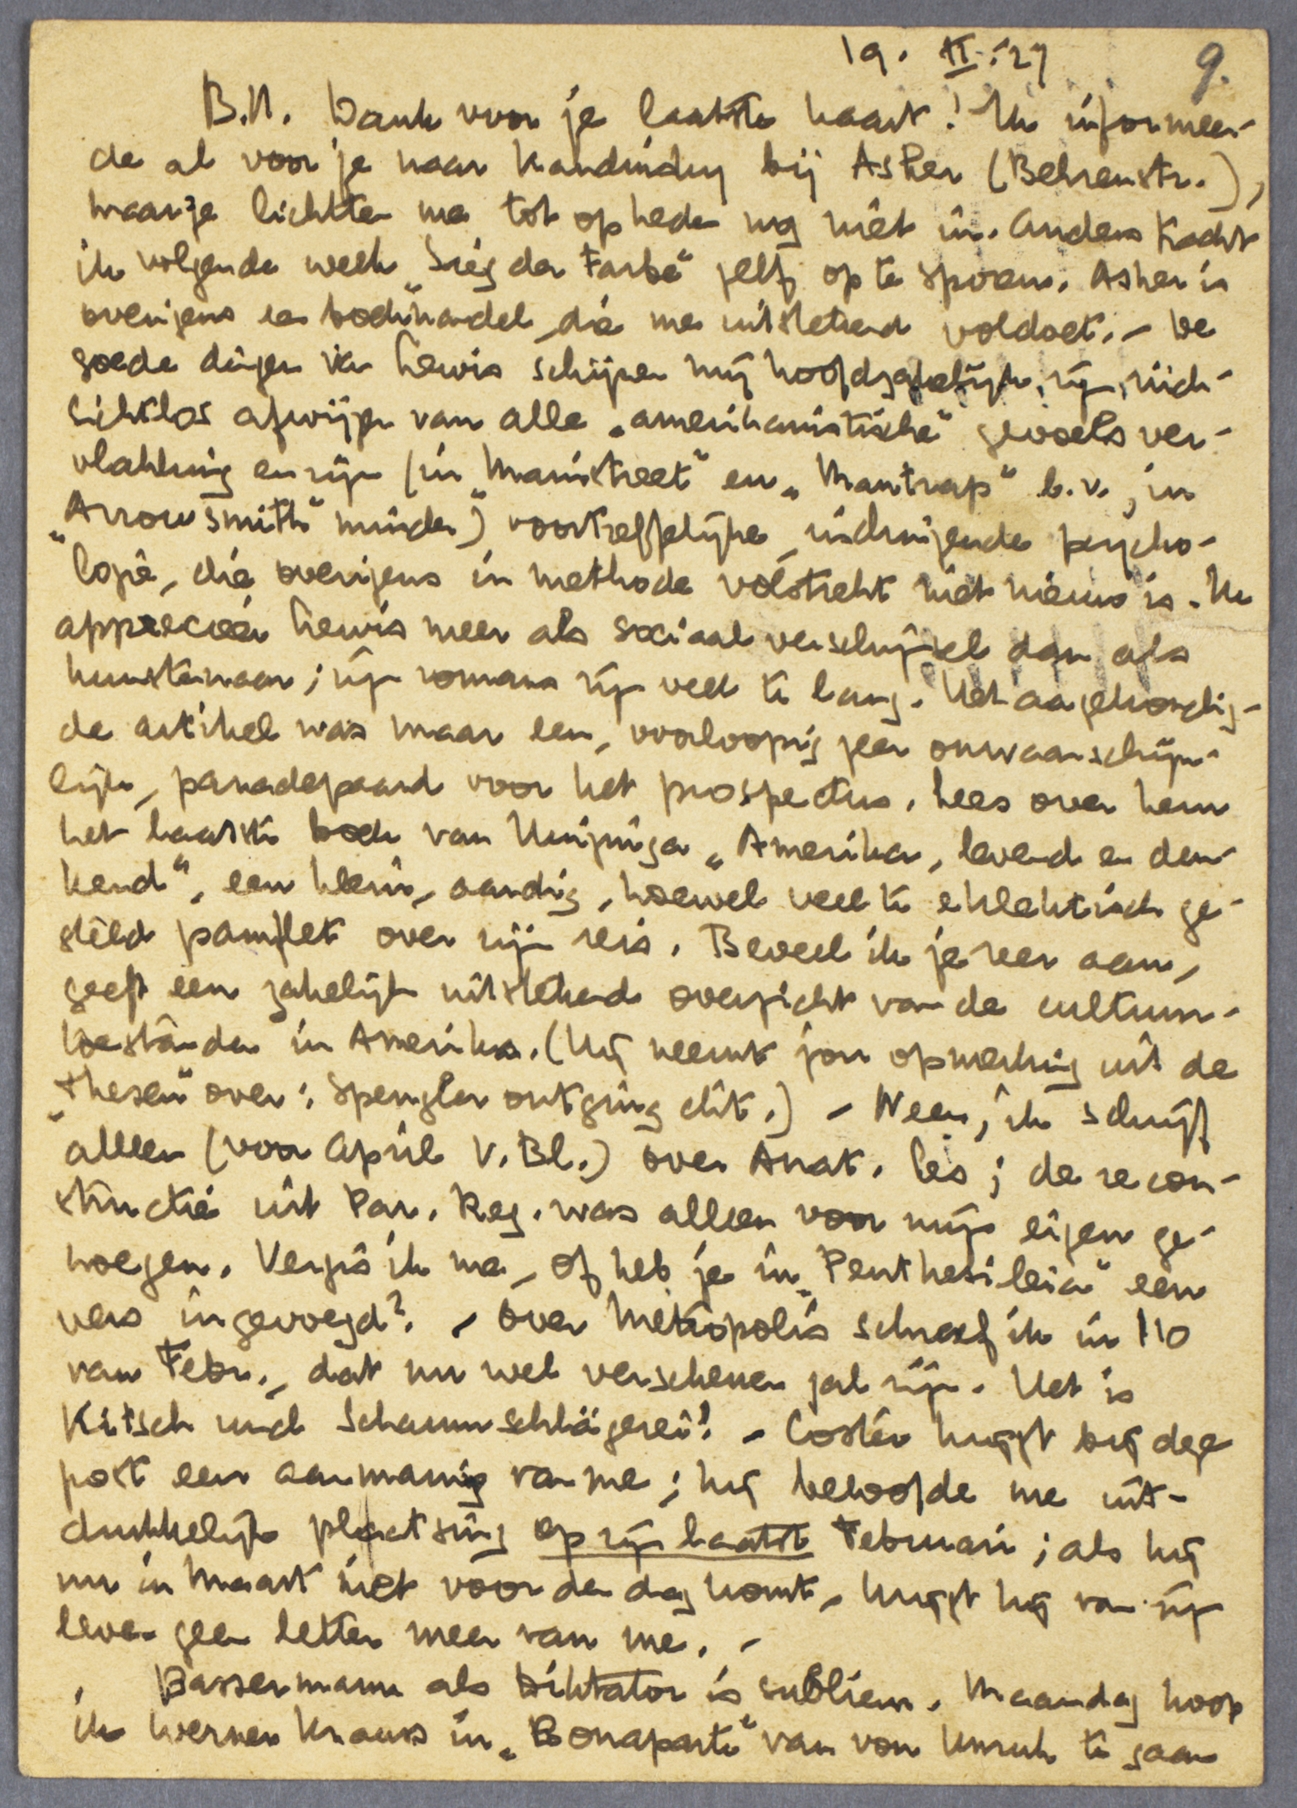 19. II. '27
9.
B.N. Dank voor je laatste kaart! Ik informeer-
de al voor je naar Kandinsky bij Asher (Behrenstr.),
maar ze lichtten me tot op heden nog niet in. Anders tracht
ik volgende week „Sieg der Farbe" zelf op te sporen. Asher is
overigens een boekhandel, die me uitstekend voldoet. – De
goede dingen van Lewis schijnen mij hoofdzakelijk: zijn rück-
sichtslos afwijzen van alle „amerikanistische" gevoelsver-
vlakking en zijn (in „Mainstreet" en „Mantrap" b.v., in
„Arrowsmith" minder) voortreffelijke, indringende psycho-
logie, die overigens in methode volstrekt niet nieuw is. Ik
apprecieer Lewis meer als sociaal verschijnsel dan als
kunstenaar; zijn romans zijn veel te lang. Het aangekondig-
de artikel was maar een, voorloopig zeer onwaarschijn-
lijk, paradepaard voor het prospectus. Lees over hem
het laatste boek van Huizinga „Amerika, levend en den-
kend", een klein, aardig, hoewel veel te eklektisch ge-
steld pamflet over zijn reis. Beveel ik je zeer aan,
geeft een zakelijk uitstekend overzicht van de cultuur-
toestanden in Amerika. (Hij neemt jou opmerking uit de
„thesen" over: Spengler ontging dit.) – Neen, ik schrijf
alleen (voor April V. Bl.) over Anat. les; de recon-
structie uit Par. Reg. was alleen voor mijn eigen ge-
noegen. Vergis ik me, of heb je in „Penthesileia" een
vers ingevoegd? – Over Metropolis schreef ik in I10
van Febr., dat nu wel verschenen zal zijn. Het is
Kitsch und Schaumschlägerei! – Coster krijgt bij deze
post een aanmaning van me; hij beloofde me uit-
drukkelijk plaatsing op zijn laatst Februari; als hij
nu in Maart niet voor den dag komt, krijgt hij van zijn
leven geen letter meer van me. –
Bassermann als Diktator is subliem. Maandag hoop
ik Werner Krauss in „Bonaparte" van von Unruh te gaan